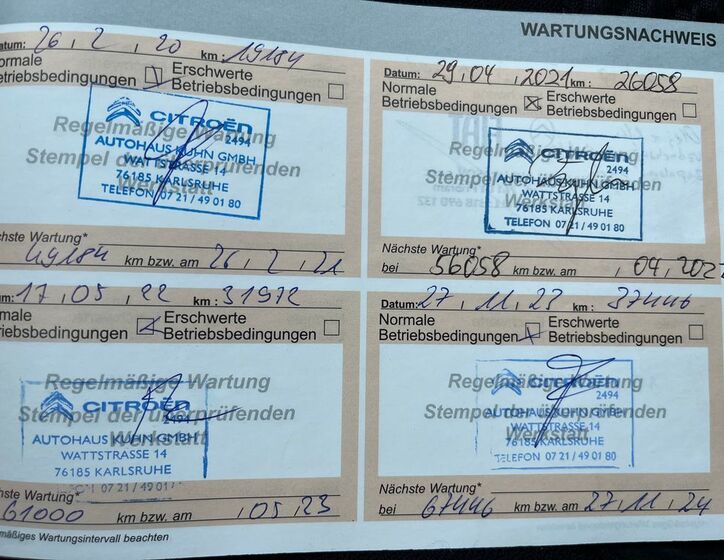 WARTUNGSNACHWEIS
atum: 26 , 2 , 20 km : 19184
Normale
etriebsbedingungen
Erschwerte
Betriebsbedingungen
Regelmäßige Wartung
Stempel der überprüfenden
Werkstatt
CITROËN
2494
AUTOHAUS KUHN GMBH
WATTSTRASSE 14
76185 KARLSRUHE
TELEFON 07 21 / 49 01 80
ächste Wartung*
49184 km bzw. am 26 , 2 , 21
Datum: 29 , 04 , 2021 km : 26058
Normale
Betriebsbedingungen
Erschwerte
Betriebsbedingungen
Regelmäßige Wartung
Stempel der überprüfenden
Werkstatt
CITROËN
2494
AUTOHAUS KUHN GMBH
WATTSTRASSE 14
76185 KARLSRUHE
TELEFON 07 21 / 49 01 80
Nächste Wartung*
bei 56058 km bzw. am , 04 , 202
um: 17 , 05 , 22 km : 31972
ormale
etriebsbedingungen
Erschwerte
Betriebsbedingungen
Regelmäßige Wartung
Stempel der überprüfenden
Werkstatt
CITROËN
2494
AUTOHAUS KUHN GMBH
WATTSTRASSE 14
76185 KARLSRUHE
07 21 / 49 01
chste Wartung*
61000 km bzw. am , 05 , 23
mäßiges Wartungsintervall beachten
Datum: 27 , 11 , 23 km : 37446
Normale
Betriebsbedingungen
Erschwerte
Betriebsbedingungen
Regelmäßige Wartung
Stempel der überprüfenden
Werkstatt
CITROËN
2494
AUTOHAUS KUHN GMBH
WATTSTRASSE 14
76185 KARLSRUHE
TELEFON 07 21 / 49 01 80
Nächste Wartung*
bei 67446 km bzw. am 27 , 11 , 24